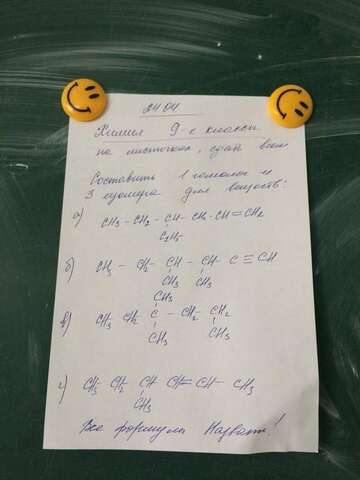 24.04
Химия 9-е классы
на листочках, сдать всем
Составить 1 гомолог и
3 изомера для веществ:
а) CH3 - CH2 - CH - CH2 - CH = CH2
C2H5
б) CH3 - CH2 - CH - CH - C ≡ CH
CH3 CH3
CH3
в) CH3 CH2 C - CH2 - CH2
CH3 CH3
г) CH3 CH2 CH CH = CH - CH3
CH3
Все формулы назвать!